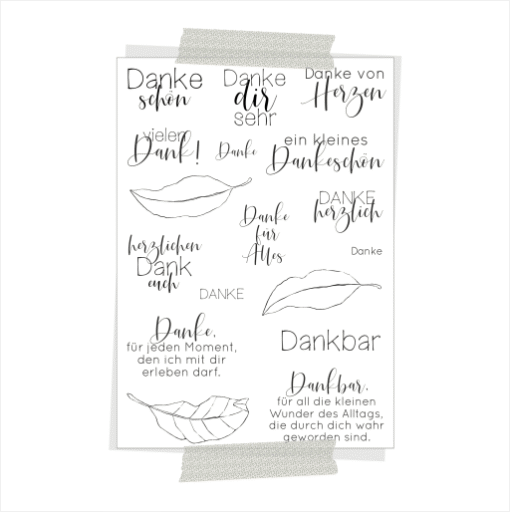 Danke
schön
Danke
dir
sehr
Danke von
Herzen
vielen
Dank!
Danke
ein kleines
Dankeschön
Danke
für
Alles
DANKE
herzlich
herzlichen
Dank
euch
Danke
DANKE
Danke,
für jeden Moment,
den ich mit dir
erleben darf.
Dankbar
Dankbar,
für all die kleinen
Wunder des Alltags,
die durch dich wahr
geworden sind.